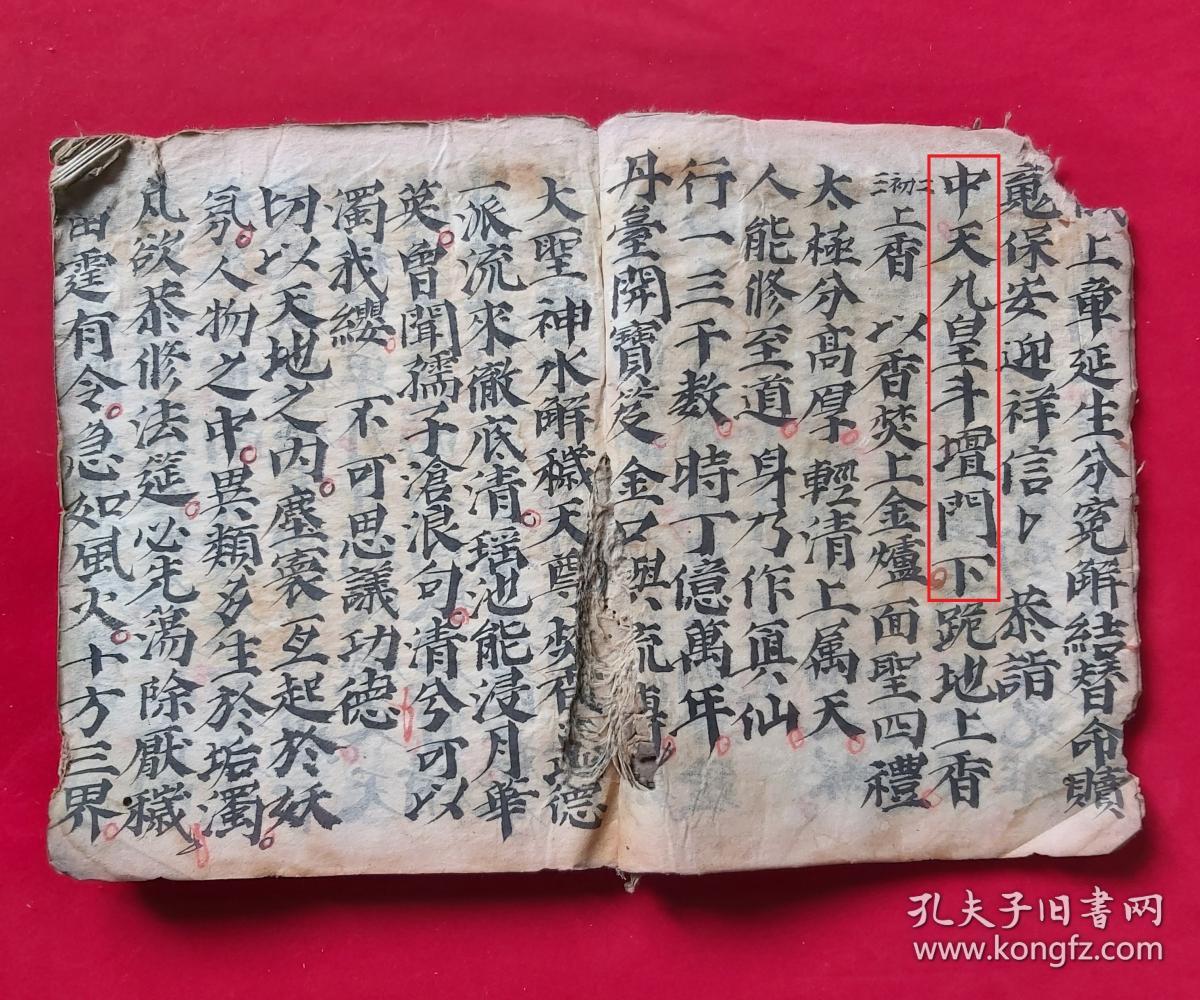 上章延生分寃解結替命贖
䰟保安迎祥信卜 恭詣
中天九皇斗壇門下跪地上香
初二三上香 以香焚上金爐 面聖四禮
太極分高厚 輕清上属天
人能修至道 身乃作眞仙
行一三千数 時丁億萬年
丹臺開寶笈 金口與流傳
大聖神水解穢天尊 焚香 德
一派流來徹底清 瑶池能浸月華
英曾聞孺子滄浪句清兮可以
濁我纓 不可思議功德
切以天地之内塵寰互起於妖
氛人物之中異類多生於垢濁
凡欲恭修法筵必先蕩除厭穢
雷霆有令急如風火十方三界
孔夫子旧书网
www.kongfz.com